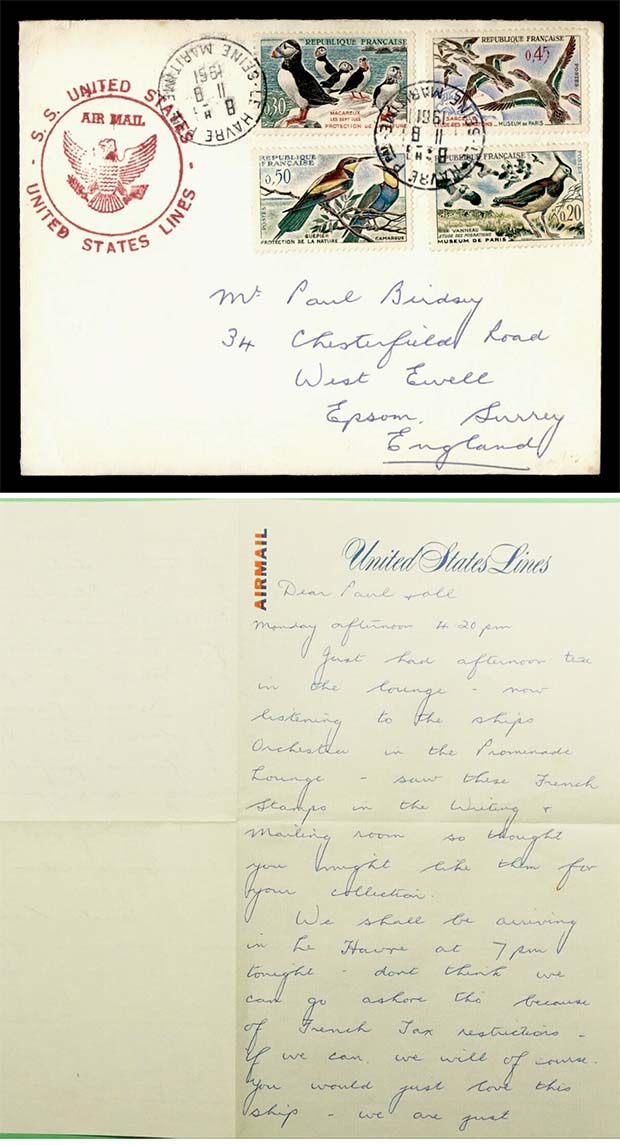 S.S. UNITED STATES
AIR MAIL
- UNITED STATES LINES -
LE HAVRE
SEINE MARITIME
8 H
11 8
1961
REPUBLIQUE FRANÇAISE
0,30
MACAREUX
LES SEPT ILES
PROTECTION DE LA NATURE
REPUBLIQUE FRANÇAISE
0,45
POSTES
SARCELLES
MUSEUM DE PARIS
REPUBLIQUE FRANÇAISE
0,50
POSTES
GUEPIER
PROTECTION DE LA NATURE CAMARGUE
0,20
VANNEAU
ETUDE DES MIGRATIONS
MUSEUM DE PARIS
Mr Paul Birdsey
34 Chesterfield Road
West Ewell
Epsom, Surrey
England
AIRMAIL
United States Lines
Dear Paul & all
Monday afternoon 4.20 pm
Just had afternoon tea
in the lounge - now
listening to the ships
Orchestra in the Promenade
Lounge - saw these French
Stamps in the Writing &
Mailing room so thought
you might like them for
your collection.
We shall be arriving
in Le Havre at 7 pm
tonight - dont think we
can go ashore tho because
of French Tax restrictions -
if we can, we will of course.
You would just love this
ship - we are just